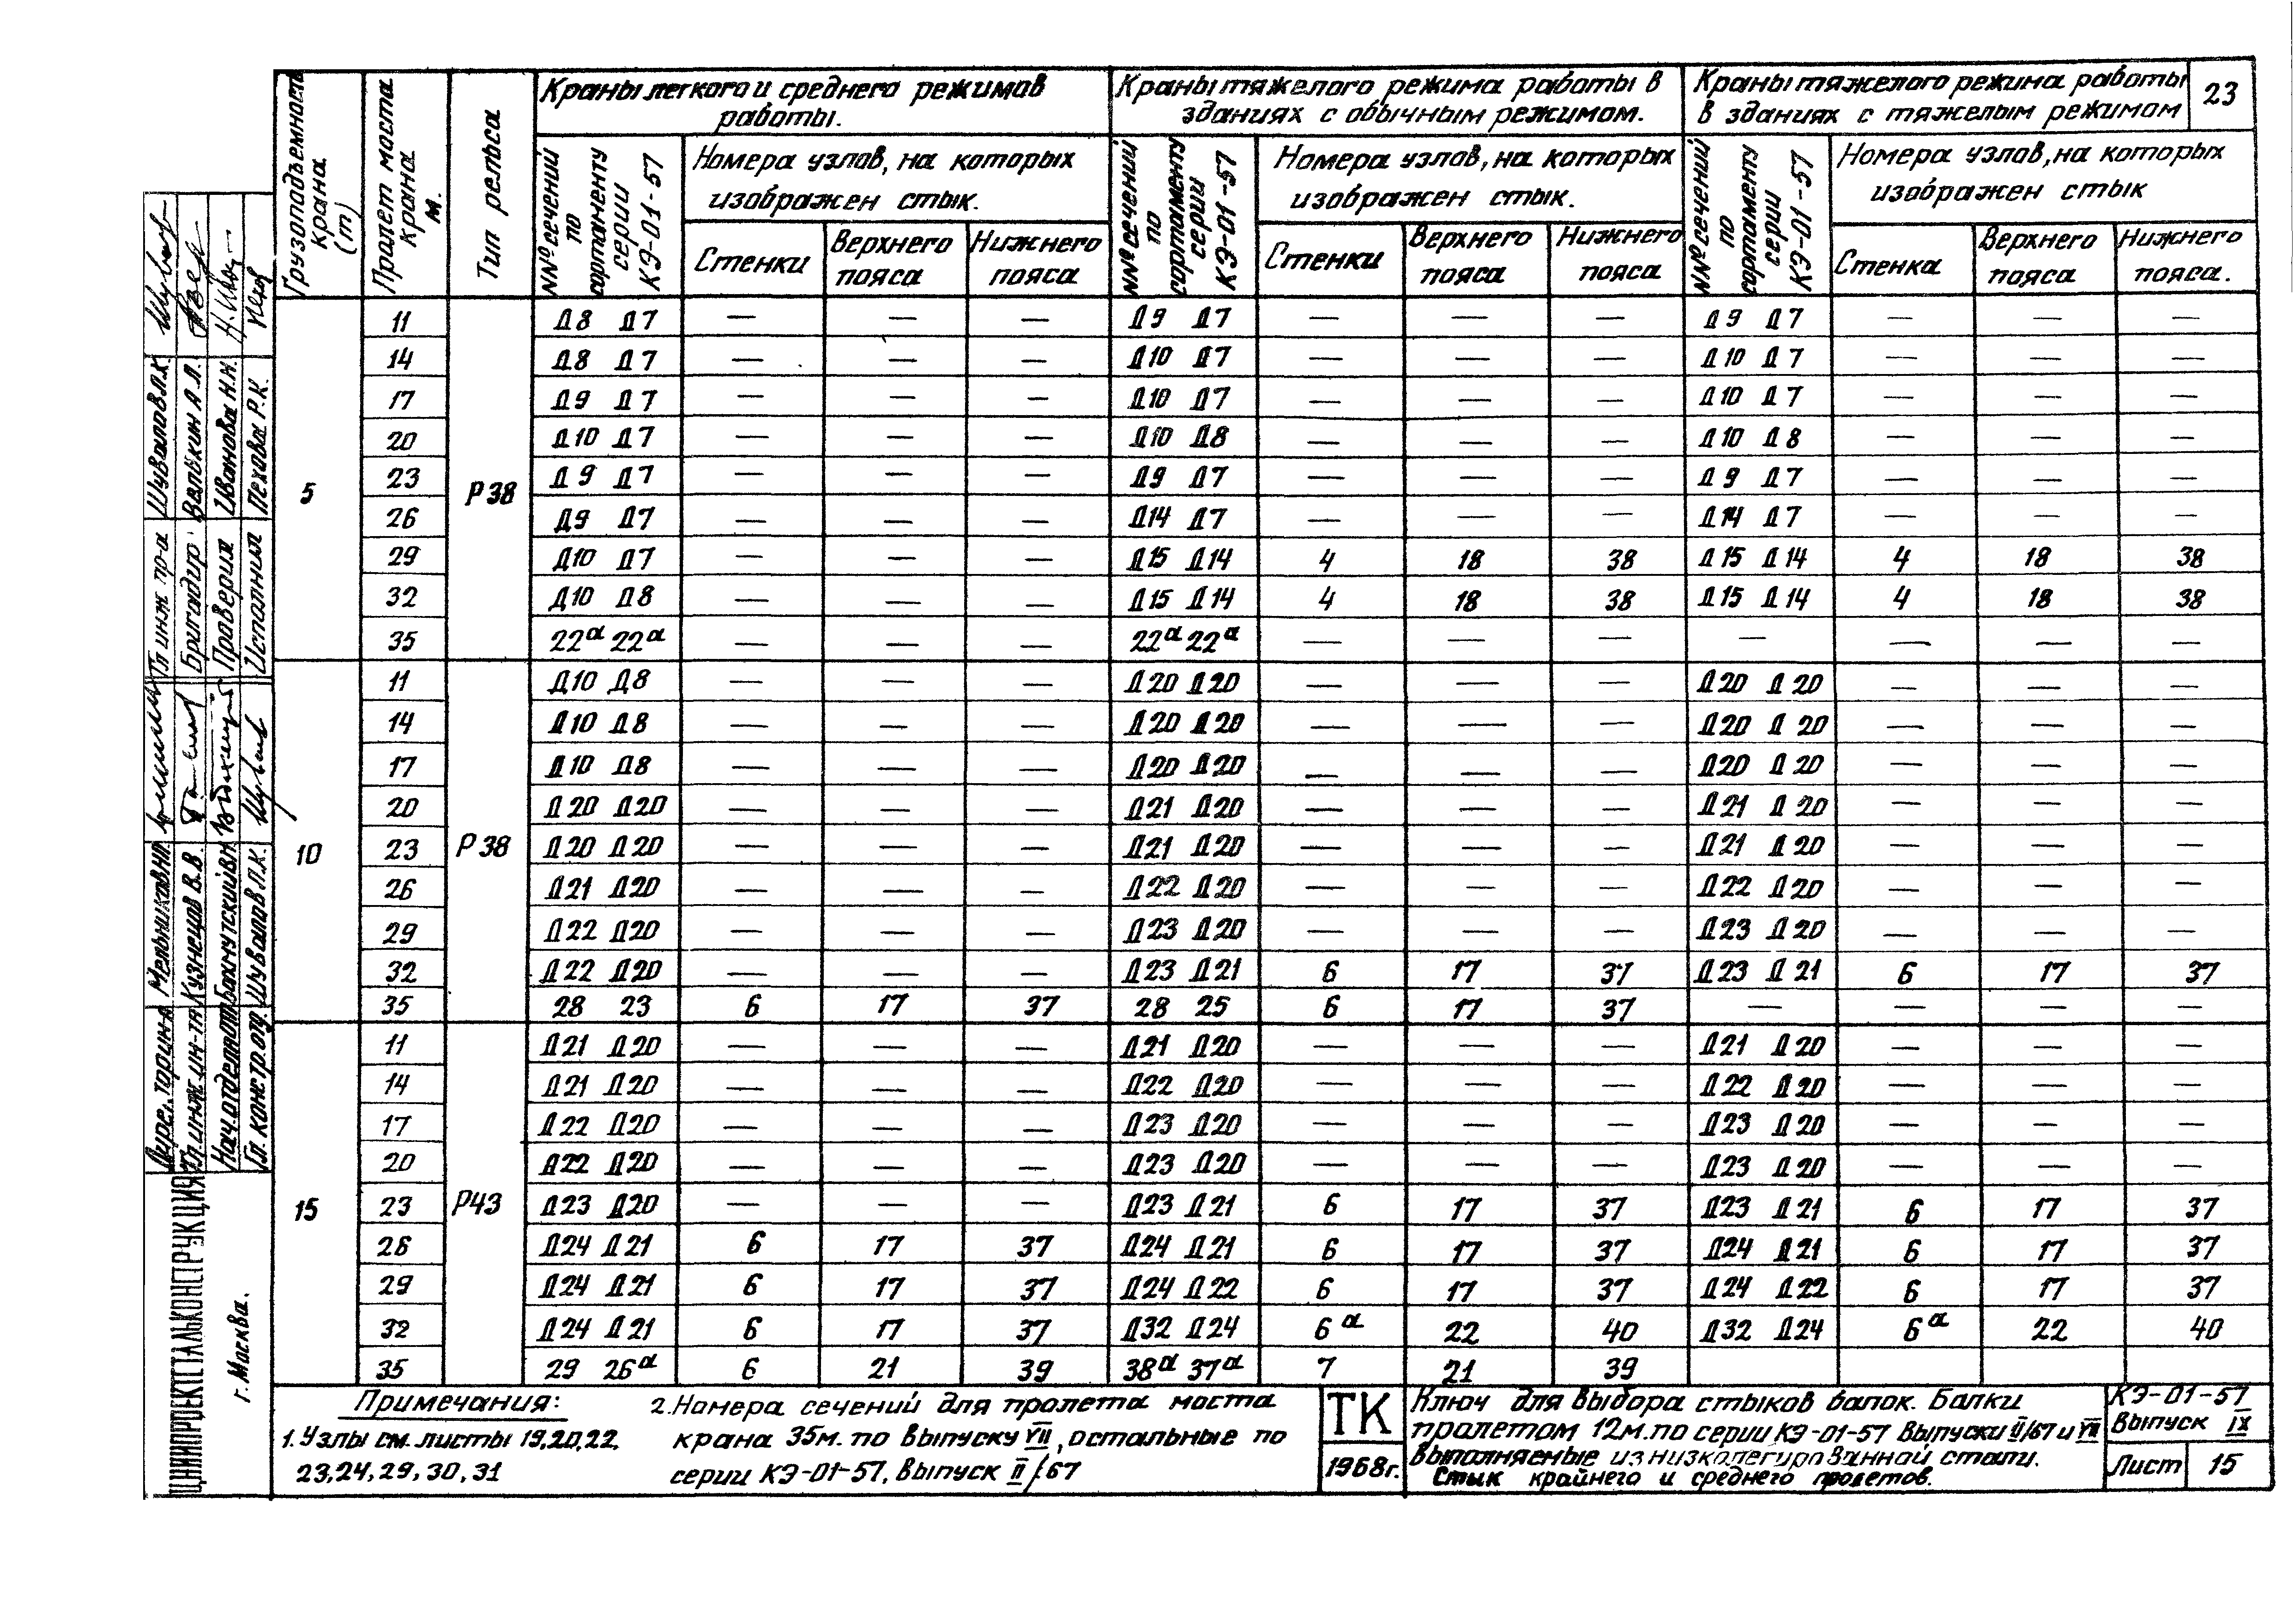 Краны легкого и среднего режимов работы.
Краны тяжелого режима работы в зданиях с обычным режимом.
Краны тяжелого режима работы в зданиях с тяжелым режимом
23
Грузоподъемность крана (т)
Пролет моста крана м.
Тип рельса
NNº сечений по сортаменту серии КЭ-01-57
Номера узлов, на которых изображен стык.
NNº сечений по сортаменту серии КЭ-01-57
Номера узлов, на которых изображен стык.
NNº сечений по сортаменту серии КЭ-01-57
Номера узлов, на которых изображен стык
Стенки Верхнего пояса Нижнего пояса
Стенки Верхнего пояса Нижнего пояса
Стенка Верхнего пояса Нижнего пояса.
5 Р38
11 Д8 Д7 — — — Д9 Д7 — — — Д9 Д7 — — —
14 Д8 Д7 — — — Д10 Д7 — — — Д10 Д7 — — —
17 Д9 Д7 — — — Д10 Д7 — — — Д10 Д7 — — —
20 Д10 Д7 — — — Д10 Д8 — — — Д10 Д8 — — —
23 Д9 Д7 — — — Д9 Д7 — — — Д9 Д7 — — —
26 Д9 Д7 — — — Д14 Д7 — — — Д14 Д7 — — —
29 Д10 Д7 — — — Д15 Д14 4 18 38 Д15 Д14 4 18 38
32 Д10 Д8 — — — Д15 Д14 4 18 38 Д15 Д14 4 18 38
35 22а 22а — — — 22а 22а — — — — — — —
10 Р38
11 Д10 Д8 — — — Д20 Д20 — — — Д20 Д20 — — —
14 Д10 Д8 — — — Д20 Д20 — — — Д20 Д20 — — —
17 Д10 Д8 — — — Д20 Д20 — — — Д20 Д20 — — —
20 Д20 Д20 — — — Д21 Д20 — — — Д21 Д20 — — —
23 Д20 Д20 — — — Д21 Д20 — — — Д21 Д20 — — —
26 Д21 Д20 — — — Д22 Д20 — — — Д22 Д20 — — —
29 Д22 Д20 — — — Д23 Д20 — — — Д23 Д20 — — —
32 Д22 Д20 — — — Д23 Д21 6 17 37 Д23 Д21 6 17 37
35 28 23 6 17 37 28 25 6 17 37 — — — —
15 Р43
11 Д21 Д20 — — — Д21 Д20 — — — Д21 Д20 — — —
14 Д21 Д20 — — — Д22 Д20 — — — Д22 Д20 — — —
17 Д22 Д20 — — — Д23 Д20 — — — Д23 Д20 — — —
20 Д22 Д20 — — — Д23 Д20 — — — Д23 Д20 — — —
23 Д23 Д20 — — — Д23 Д21 6 17 37 Д23 Д21 6 17 37
26 Д24 Д21 6 17 37 Д24 Д21 6 17 37 Д24 Д21 6 17 37
29 Д24 Д21 6 17 37 Д24 Д22 6 17 37 Д24 Д22 6 17 37
32 Д24 Д21 6 17 37 Д32 Д24 6а 22 40 Д32 Д24 6а 22 40
35 29 26а 6 21 39 38а 37а 7 21 39
Примечания:
1. Узлы см. листы 19,20,22,
23,24,29,30,31
2. Номера сечений для пролета моста
крана 35м. по выпуску VII, остальные по
серии КЭ-01-57, выпуск II/67
ТК
1968г.
Ключ для выбора стыков балок. Балки
пролетом 12м. по серии КЭ-01-57 Выпуски II/67 и VII
выполняемые из низколегированной стали.
Стык крайнего и среднего пролетов.
КЭ-01-57
Выпуск IX
Лист 15
Гл инж пр-а Шувалов Л.К.
Бригадир Валькин А.Л.
Проверил Иванова Н.Н.
Исполнил Пехова Р.К.
Мельников Н.П.
Гл. инж. ин-та Кузнецов В.В
Нач. отдела Бахмутский В.М
Гл. констр. отд. Шувалов Л.К.
ЦНИИПРОЕКТСТАЛЬКОНСТРУКЦИЯ
г. Москва.